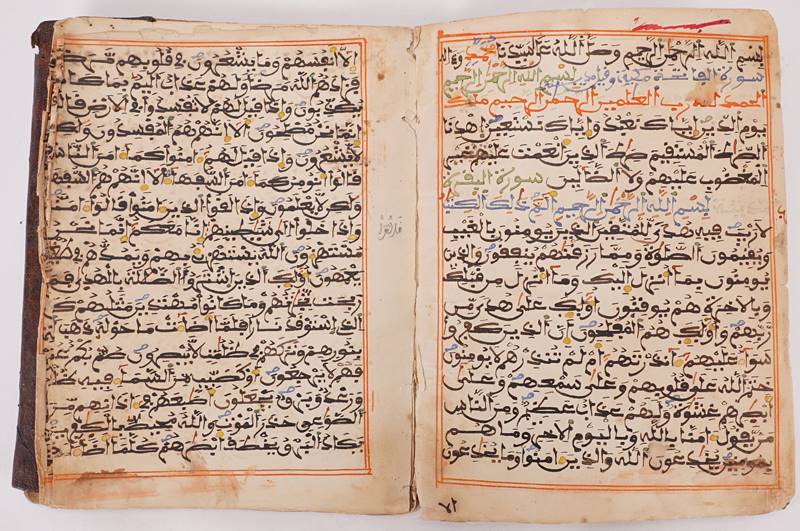 بسم الله الرحمن الرحيم وصلى الله على سيدنا محمد وءاله
سورة الفاتحة بسم الله الرحمن الرحيم
الحمد لله رب العلمين الرحمن الرحيم ملك
يوم الدين اياك نعبد واياك نستعين اهدنا
الصراط المستقيم صراط الذين انعمت عليهم غير
المغضوب عليهم ولا الضالين سورة البقرة
بسم الله الرحمن الرحيم الم ذلك الكتب
لا ريب فيه هدى للمتقين الذين يومنون بالغيب
ويقيمون الصلوة ومما رزقنهم ينفقون والذين
يومنون بما انزل اليك وما انزل من قبلك
وبالاخرة هم يوقنون اوليك على هدى من
ربهم واوليك هم المفلحون ان الذين كفروا
سوا عليهم ءانذرتهم ام لم تنذرهم لا يومنون
ختم الله على قلوبهم وعلى سمعهم وعلى
ابصرهم غشوة ولهم عذاب عظيم ومن الناس
من يقول امنا بالله وباليوم الاخر وما هم
بمومنين يخدعون الله والذين امنوا وما يخدعون
الا انفسهم وما يشعرون في قلوبهم مرض
فزادهم الله مرضا ولهم عذاب اليم بما كانوا
يكذبون واذا قيل لهم لا تفسدوا في الارض قالوا
انما نحن مصلحون الا انهم هم المفسدون ولكن
لا يشعرون واذا قيل لهم امنوا كما امن الناس
قالوا انومن كما امن السفها الا انهم هم السفها
ولكن لا يعلمون واذا لقوا الذين امنوا قالوا امنا
واذا خلوا الى شيطينهم قالوا انا معكم انما نحن
مستهزون الله يستهزئ بهم ويمدهم في طغينهم
يعمهون اوليك الذين اشتروا الضللة بالهدى فما
ربحت تجرتهم وما كانوا مهتدين مثلهم كمثل
الذي استوقد نارا فلما اضات ما حوله ذهب الله
بنورهم وتركهم في ظلمت لا يبصرون صم بكم عمي
فهم لا يرجعون او كصيب من السما فيه ظلمت
ورعد وبرق يجعلون اصبعهم في اذانهم من
الصوعق حذر الموت والله محيط بالكفرين
يكاد البرق يخطف ابصرهم كلما اضا